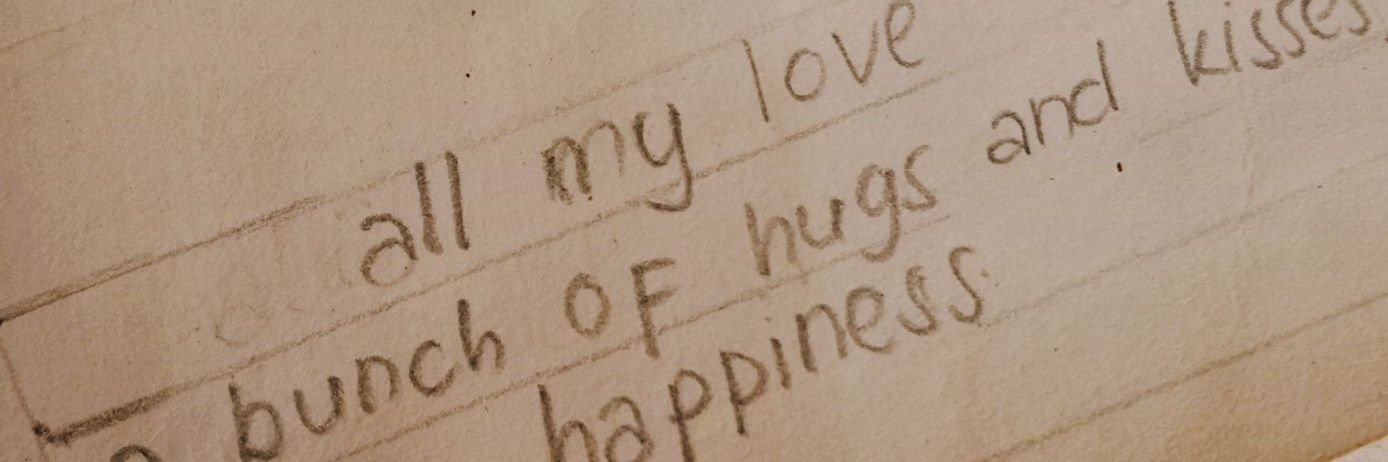 all my love
a bunch OF hugs and kisses
happiness.